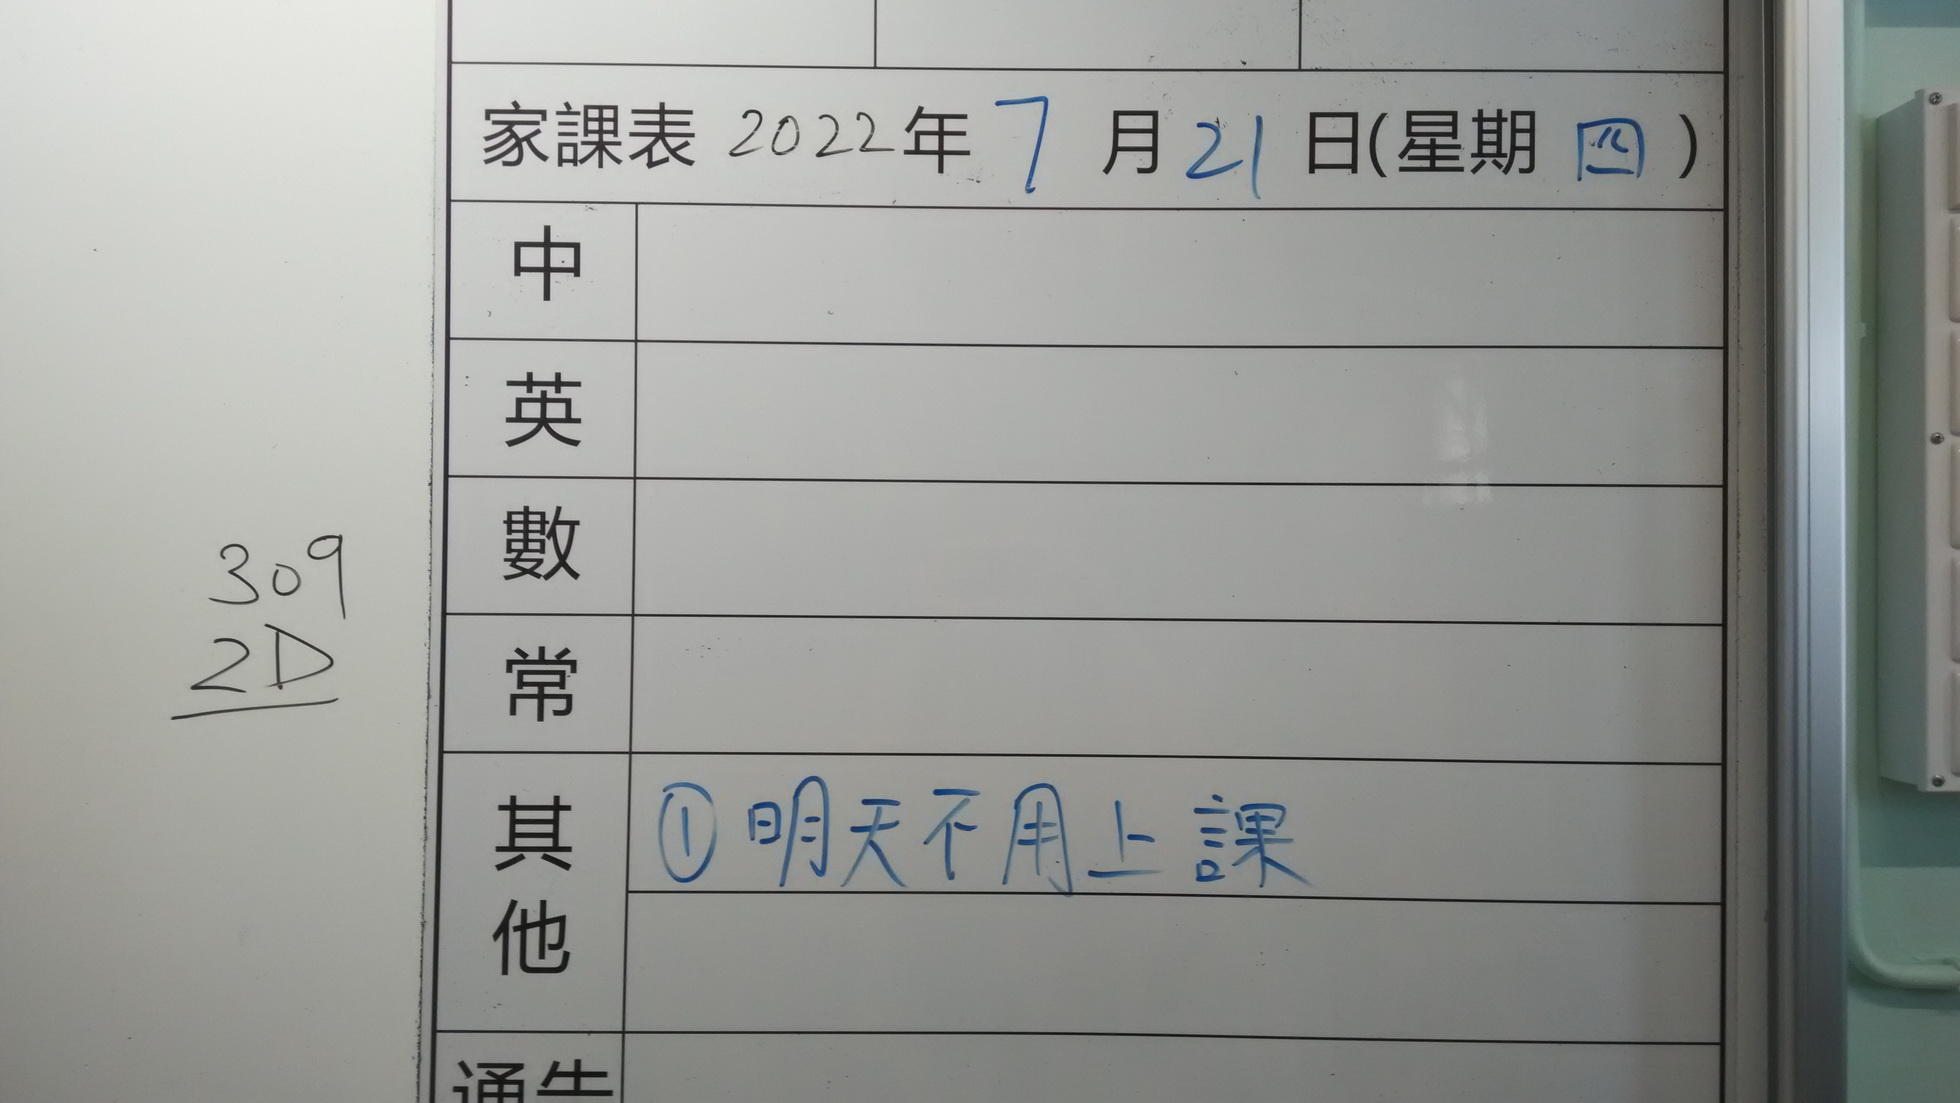 家課表 2022年 7 月 21 日(星期 四)
中
英
數
常
309
2D
其他
① 明天不用上課
通告